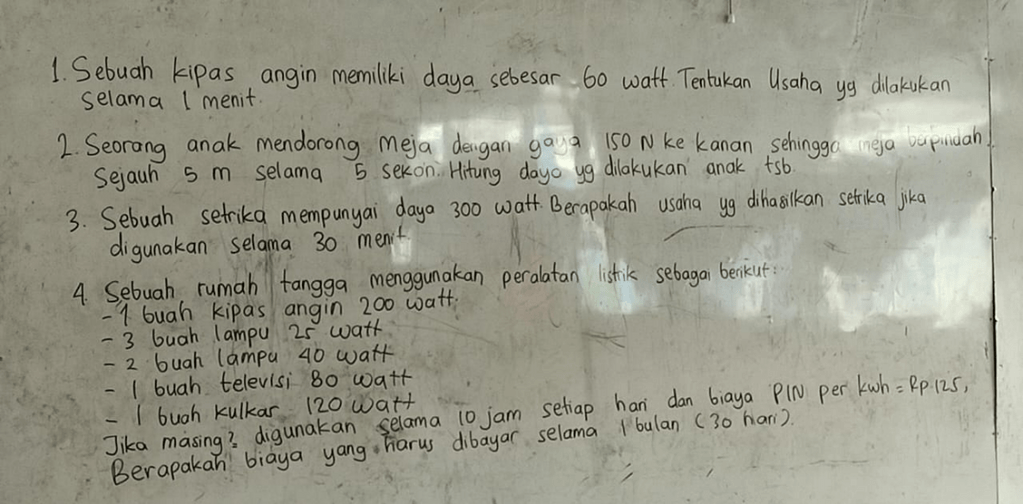 1. Sebuah kipas angin memiliki daya sebesar 60 watt. Tentukan Usaha yg dilakukan
selama 1 menit.
2. Seorang anak mendorong meja dengan gaya 150 N ke kanan sehingga meja berpindah
sejauh 5 m selama 5 sekon. Hitung daya yg dilakukan anak tsb.
3. Sebuah setrika mempunyai daya 300 watt. Berapakah usaha yg dihasilkan setrika jika
digunakan selama 30 menit.
4. Sebuah rumah tangga menggunakan peralatan listrik sebagai berikut:
- 1 buah kipas angin 200 watt.
- 3 buah lampu 25 watt
- 2 buah lampu 40 watt
- 1 buah televisi 80 watt
- 1 buah kulkar 120 watt
Jika masing2 digunakan selama 10 jam setiap hari dan biaya PIN per kwh = Rp.125,
Berapakah biaya yang harus dibayar selama 1 bulan (30 hari).